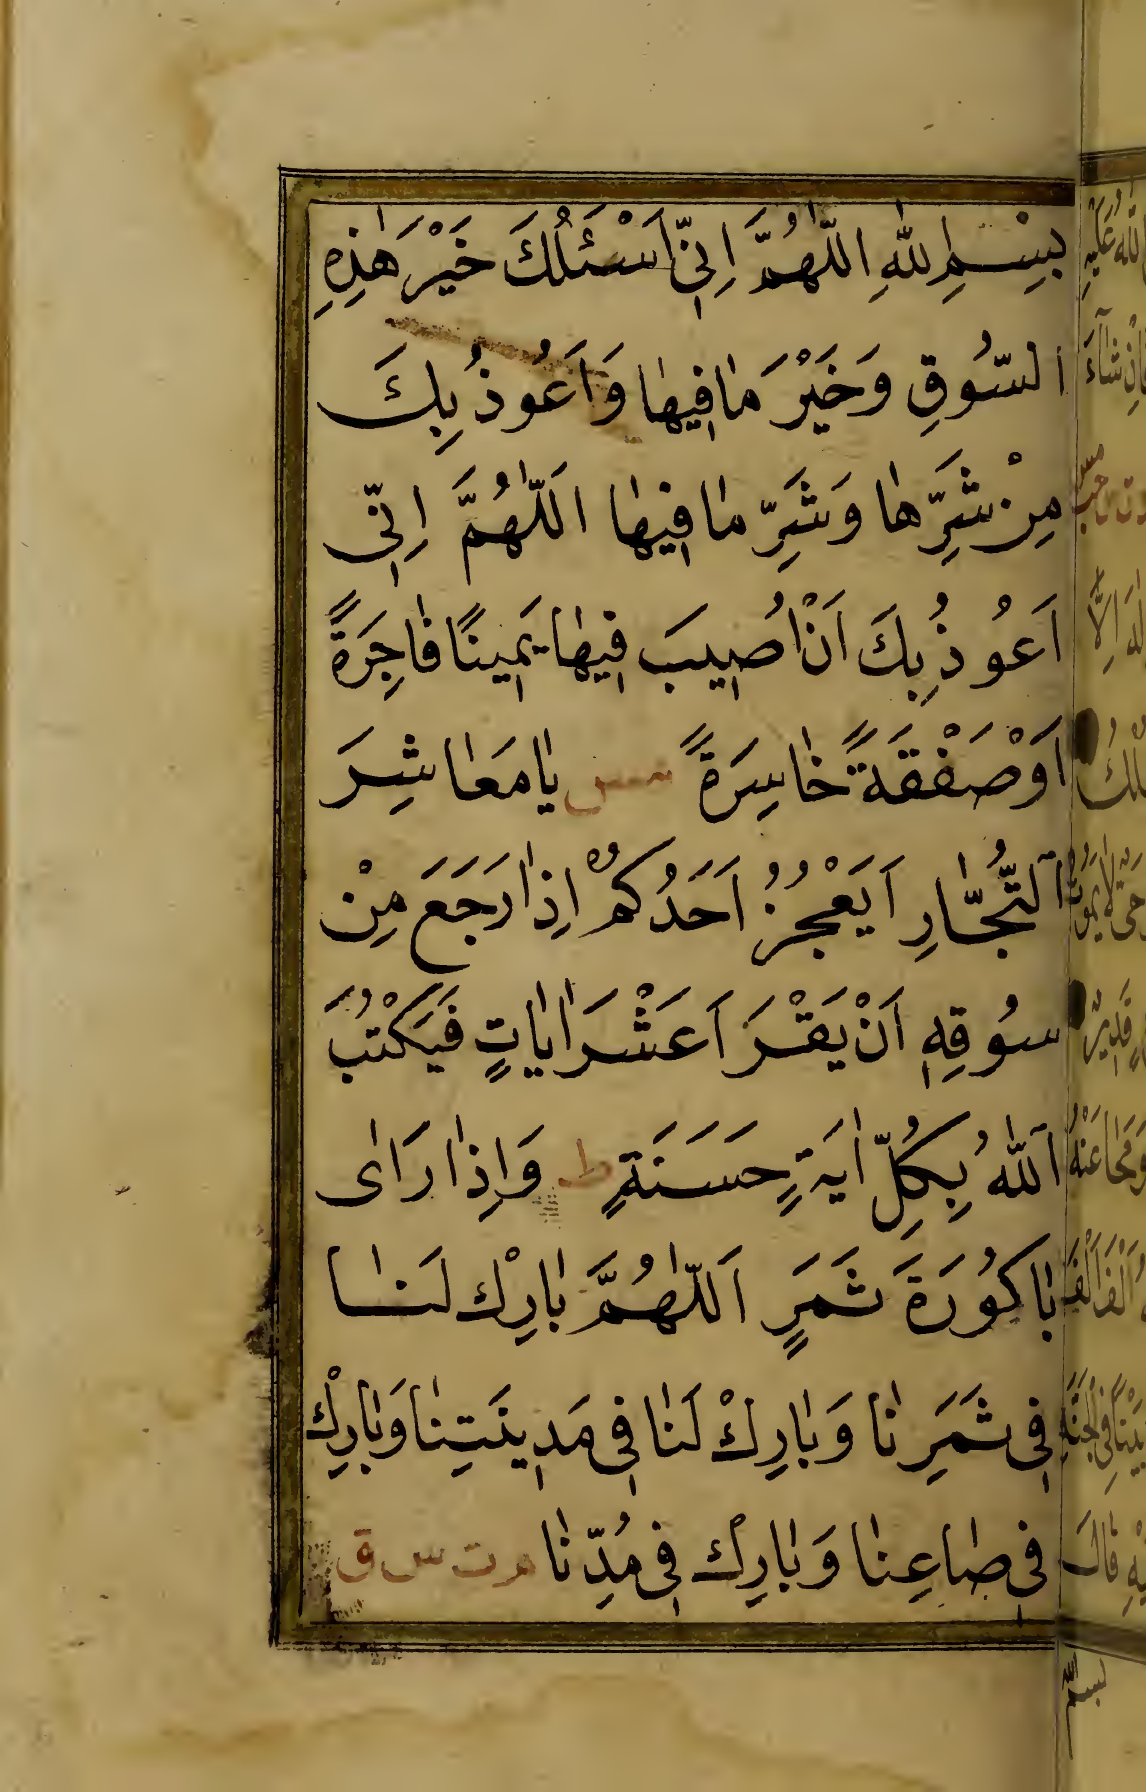 بِسْمِ اللهِ اللّٰهُمَّ اِنِّي اَسْئَلُكَ خَيْرَ هٰذِهِ
السُّوقِ وَخَيْرَ مٰا فِيهٰا وَاَعُوذُ بِكَ
مِنْ شَرِّهٰا وَشَرِّ مٰا فِيهٰا اَللّٰهُمَّ اِنِّي
اَعُوذُ بِكَ اَنْ اُصِيبَ فِيهٰا يَمِينًا فٰاجِرَةً
اَوْ صَفْقَةً خٰاسِرَةً مس يٰا مَعٰاشِرَ
اَلتُّجّٰارِ اَيَعْجُزُ اَحَدُكُمْ اِذٰا رَجَعَ مِنْ
سُوقِهِ اَنْ يَقْرَاَ عَشْرَ اٰيٰاتٍ فَيَكْتُبَ
اَللّٰهُ بِكُلِّ اٰيَةٍ حَسَنَةٍ ط وَاِذٰا رَاٰى
بٰاكُورَةَ ثَمَرٍ اَللّٰهُمَّ بٰارِكْ لَنٰا
فِي ثَمَرِنٰا وَبٰارِكْ لَنٰا فِي مَدِينَتِنٰا وَبٰارِكْ
فِي صٰاعِنٰا وَبٰارِكْ فِي مُدِّنٰا م ت س ق